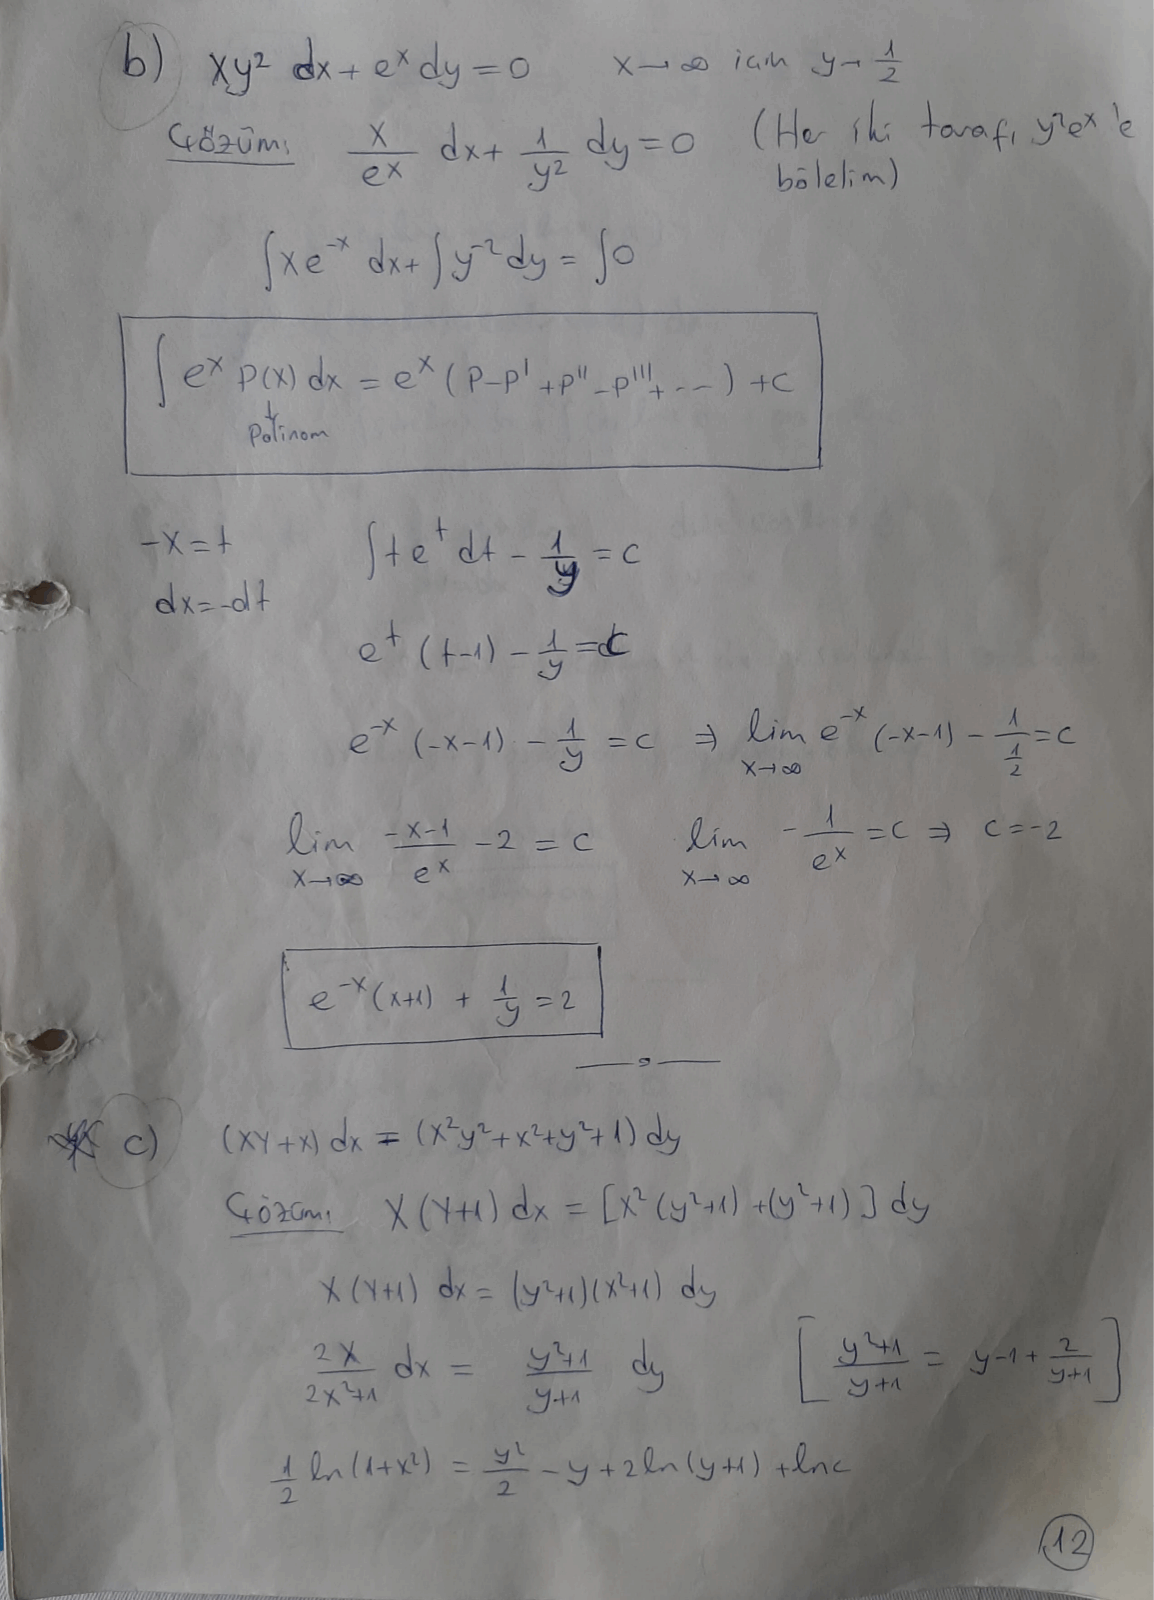 b) xy² dx + eˣ dy = 0    x→∞ için y→ 1/2
Çözüm: x/eˣ dx + 1/y² dy = 0 (Her iki tarafı y²eˣ 'e
bölelim)
∫xe⁻ˣ dx + ∫y⁻² dy = ∫0
∫ eˣ P(x) dx = eˣ (P-P'+P''-P'''+ ---) + c
↓
Polinom
-x = t    ∫te^t dt - 1/y = c
dx = -dt
e^t (t-1) - 1/y = c
e⁻ˣ (-x-1) - 1/y = c ⇒ lim x→∞ e⁻ˣ (-x-1) - 1/(1/2) = c
lim x→∞ (-x-1)/eˣ - 2 = c    lim x→∞ - 1/eˣ = c ⇒ c = -2
e⁻ˣ(x+1) + 1/y = 2
c) (xy+x) dx = (x²y²+x²+y²+1) dy
Çözüm: x(y+1) dx = [x²(y²+1)+(y²+1)] dy
x(y+1) dx = (y²+1)(x²+1) dy
2x/(2x²+1) dx = (y²+1)/(y+1) dy    [(y²+1)/(y+1) = y-1 + 2/(y+1)]
1/2 ln(1+x²) = y²/2 - y + 2ln(y+1) + lnc
12